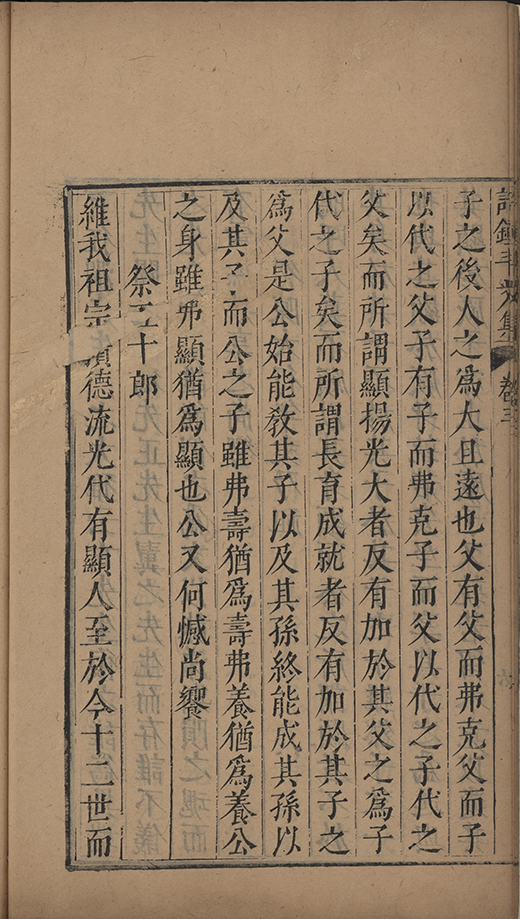 集 卷三
子之後人之爲大且遠也父有父而弗克父而子
以代之父子有子而弗克子而父以代之子代之
父矣而所謂顯揚光大者反有加於其父之爲子
代之子矣而所謂長育成就者反有加於其子之
爲父是公始能教其子以及其孫終能成其孫以
及其子而公之子雖弗壽猶爲壽弗養猶爲養公
之身雖弗顯猶爲顯也公又何憾尚饗
祭 十郎
維我祖宗 德流光代有顯人至於今十二世而